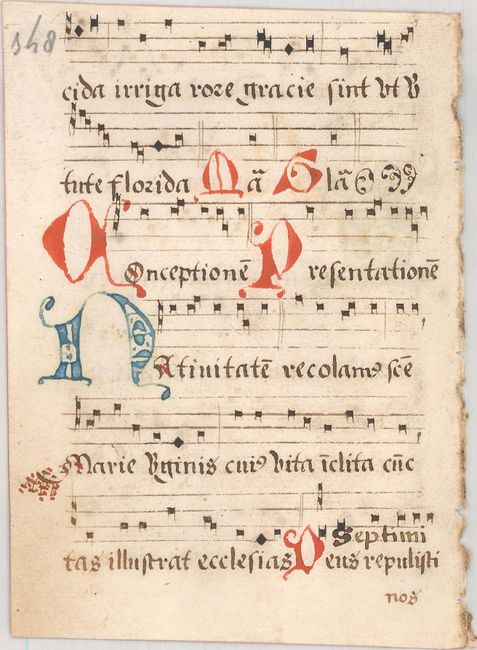 348
cida irriga rore gracie sint vt v
tute florida Mā Glā
Conceptionē Presentationē
Natiuitatē recolamꝰ scē
Marie vginis cuiꝰ vita īclita cūc
Septimi
tas illustrat ecclesias Deus repulisti
nos